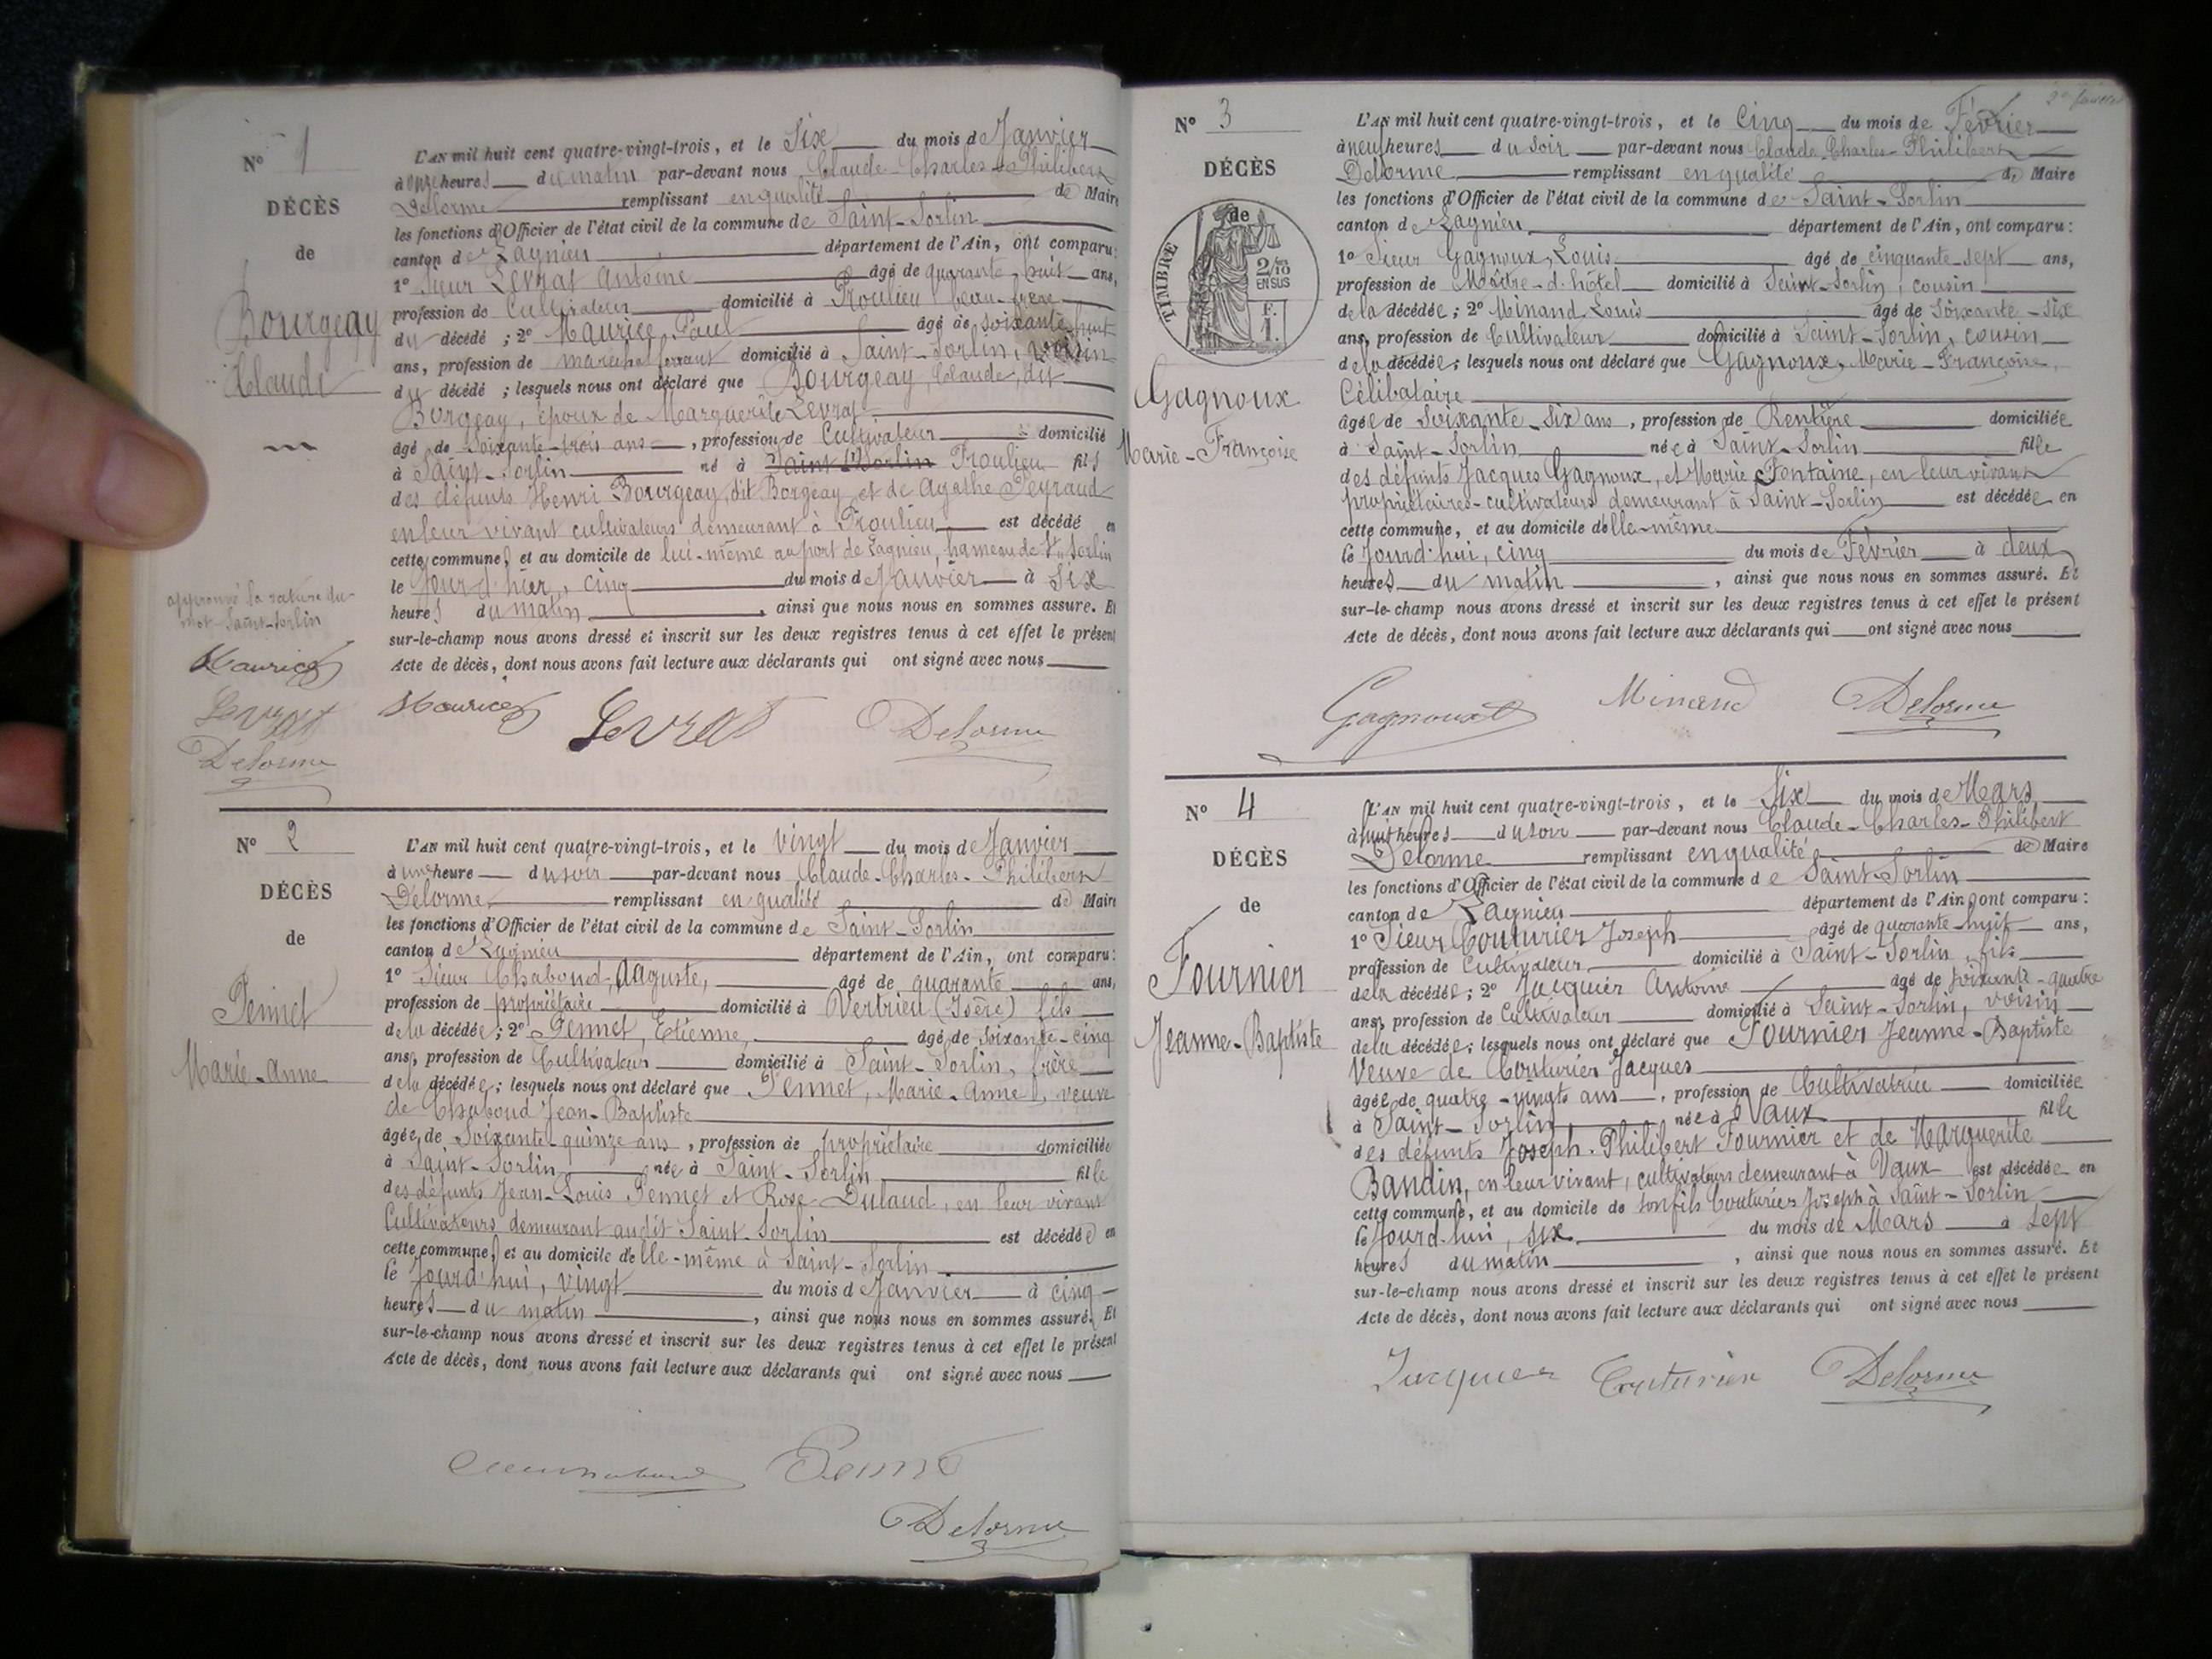 N° 1
DÉCÈS
de
Bourgeay
Claude
approuvé la rature du
mot Saint-Sorlin
Maurice
Levrat
Delorme
L'AN mil huit cent quatre-vingt-trois, et le Six du mois de Janvier
à onze heures du matin par-devant nous Claude-Charles-Philibert
Delorme remplissant en qualité de Maire
les fonctions d'Officier de l'état civil de la commune de Saint-Sorlin
canton de Lagnieu département de l'Ain, ont comparu:
1° Sieur Levrat Antoine âgé de quarante-huit ans,
profession de Cultivateur domicilié à Proulieu beau-frère
du décédé ; 2° Maurice Paul âgé de soixante-huit
ans, profession de maréchal ferrant domicilié à Saint-Sorlin, voisin
du décédé ; lesquels nous ont déclaré que Bourgeay, Claude, dit
Borgeay, époux de Marguerite Levrat
âgé de Soixante-trois ans, profession de Cultivateur domicilié
à Saint-Sorlin né à Saint-Sorlin Proulieu fils
des défunts Henri Bourgeay, dit Borgeay, et de Agathe Peyraud
en leur vivant cultivateurs demeurant à Proulieu est décédé en
cette commune, et au domicile de lui-même au port de Lagnieu, hameau de St Sorlin
le Jour d'hier, cinq du mois de Janvier à Six
heures du matin, ainsi que nous nous en sommes assuré. Et
sur-le-champ nous avons dressé et inscrit sur les deux registres tenus à cet effet le présent
Acte de décès, dont nous avons fait lecture aux déclarants qui ont signé avec nous
Maurice Levrat Delorme
N° 2
DÉCÈS
de
Pennet
Marie-Anne
L'AN mil huit cent quatre-vingt-trois, et le vingt du mois de Janvier
à une heure du soir par-devant nous Claude-Charles-Philibert
Delorme remplissant en qualité de Maire
les fonctions d'Officier de l'état civil de la commune de Saint-Sorlin
canton de Lagnieu département de l'Ain, ont comparu:
1° Sieur Chaboud, Auguste, âgé de quarante ans,
profession de propriétaire domicilié à Vertrieu (Isère) fils
de la décédée; 2° Pennet, Etienne, âgé de soixante-cinq
ans, profession de Cultivateur domicilié à Saint-Sorlin, frère
de la décédée; lesquels nous ont déclaré que Pennet, Marie-Anne, veuve
de Chaboud Jean-Baptiste
âgée de Soixante-quinze ans, profession de propriétaire domiciliée
à Saint-Sorlin née à Saint-Sorlin fille
des défunts Jean-Louis Pennet et Rose Dulaud, en leur vivant
Cultivateurs demeurant audit Saint-Sorlin est décédée en
cette commune, et au domicile d'elle-même à Saint-Sorlin
le Jourd'hui, vingt du mois de Janvier à cinq
heures du matin, ainsi que nous nous en sommes assuré. Et
sur-le-champ nous avons dressé et inscrit sur les deux registres tenus à cet effet le présent
Acte de décès, dont nous avons fait lecture aux déclarants qui ont signé avec nous
Delorme
N° 3
DÉCÈS
de
TIMBRE
2/10
EN SUS
F.
1.
Gagnoux
Marie-Françoise
L'AN mil huit cent quatre-vingt-trois, et le Cinq du mois de Février
à neuf heures du soir par-devant nous Claude-Charles-Philibert
Delorme remplissant en qualité de Maire
les fonctions d'Officier de l'état civil de la commune de Saint-Sorlin
canton de Lagnieu département de l'Ain, ont comparu:
1° Sieur Gagnoux, Louis âgé de cinquante-sept ans,
profession de Maître-d'hôtel domicilié à Saint-Sorlin, cousin
de la décédée; 2° Minand Louis âgé de Soixante-six
ans, profession de Cultivateur domicilié à Saint-Sorlin, cousin
de la décédée; lesquels nous ont déclaré que Gagnoux, Marie-Françoise,
Célibataire
âgée de Soixante-six ans, profession de Rentière domiciliée
à Saint-Sorlin née à Saint-Sorlin fille
des défunts Jacques Gagnoux, et Marie Fontaine, en leur vivant
propriétaires-cultivateurs demeurant à Saint-Sorlin est décédée en
cette commune, et au domicile d'elle-même
le Jourd'hui, cinq du mois de Février à deux
heures du matin, ainsi que nous nous en sommes assuré. Et
sur-le-champ nous avons dressé et inscrit sur les deux registres tenus à cet effet le présent
Acte de décès, dont nous avons fait lecture aux déclarants qui ont signé avec nous
Gagnoux Minand Delorme
N° 4
DÉCÈS
de
Fournier
Jeanne-Baptiste
L'AN mil huit cent quatre-vingt-trois, et le Six du mois de Mars
à huit heures du soir par-devant nous Claude-Charles-Philibert
Delorme remplissant en qualité de Maire
les fonctions d'Officier de l'état civil de la commune de Saint-Sorlin
canton de Lagnieu département de l'Ain, ont comparu:
1° Sieur Couturier Joseph âgé de quarante-huit ans,
profession de Cultivateur domicilié à Saint-Sorlin, fils
de la décédée; 2° Jacquier Antoine âgé de soixante-quatre
ans, profession de Cultivateur domicilié à Saint-Sorlin, voisin
de la décédée; lesquels nous ont déclaré que Fournier Jeanne-Baptiste
Veuve de Couturier Jacques
âgée de quatre-vingts ans, profession de Cultivatrice domiciliée
à Saint-Sorlin née à Vaux fille
des défunts Joseph-Philibert Fournier et de Marguerite
Bandin, en leur vivant, cultivateurs demeurant à Vaux est décédée en
cette commune, et au domicile de son fils Couturier Joseph à Saint-Sorlin
le Jourd'hui, six du mois de Mars à sept
heures du matin, ainsi que nous nous en sommes assuré. Et
sur-le-champ nous avons dressé et inscrit sur les deux registres tenus à cet effet le présent
Acte de décès, dont nous avons fait lecture aux déclarants qui ont signé avec nous
Jacquier Couturier Delorme